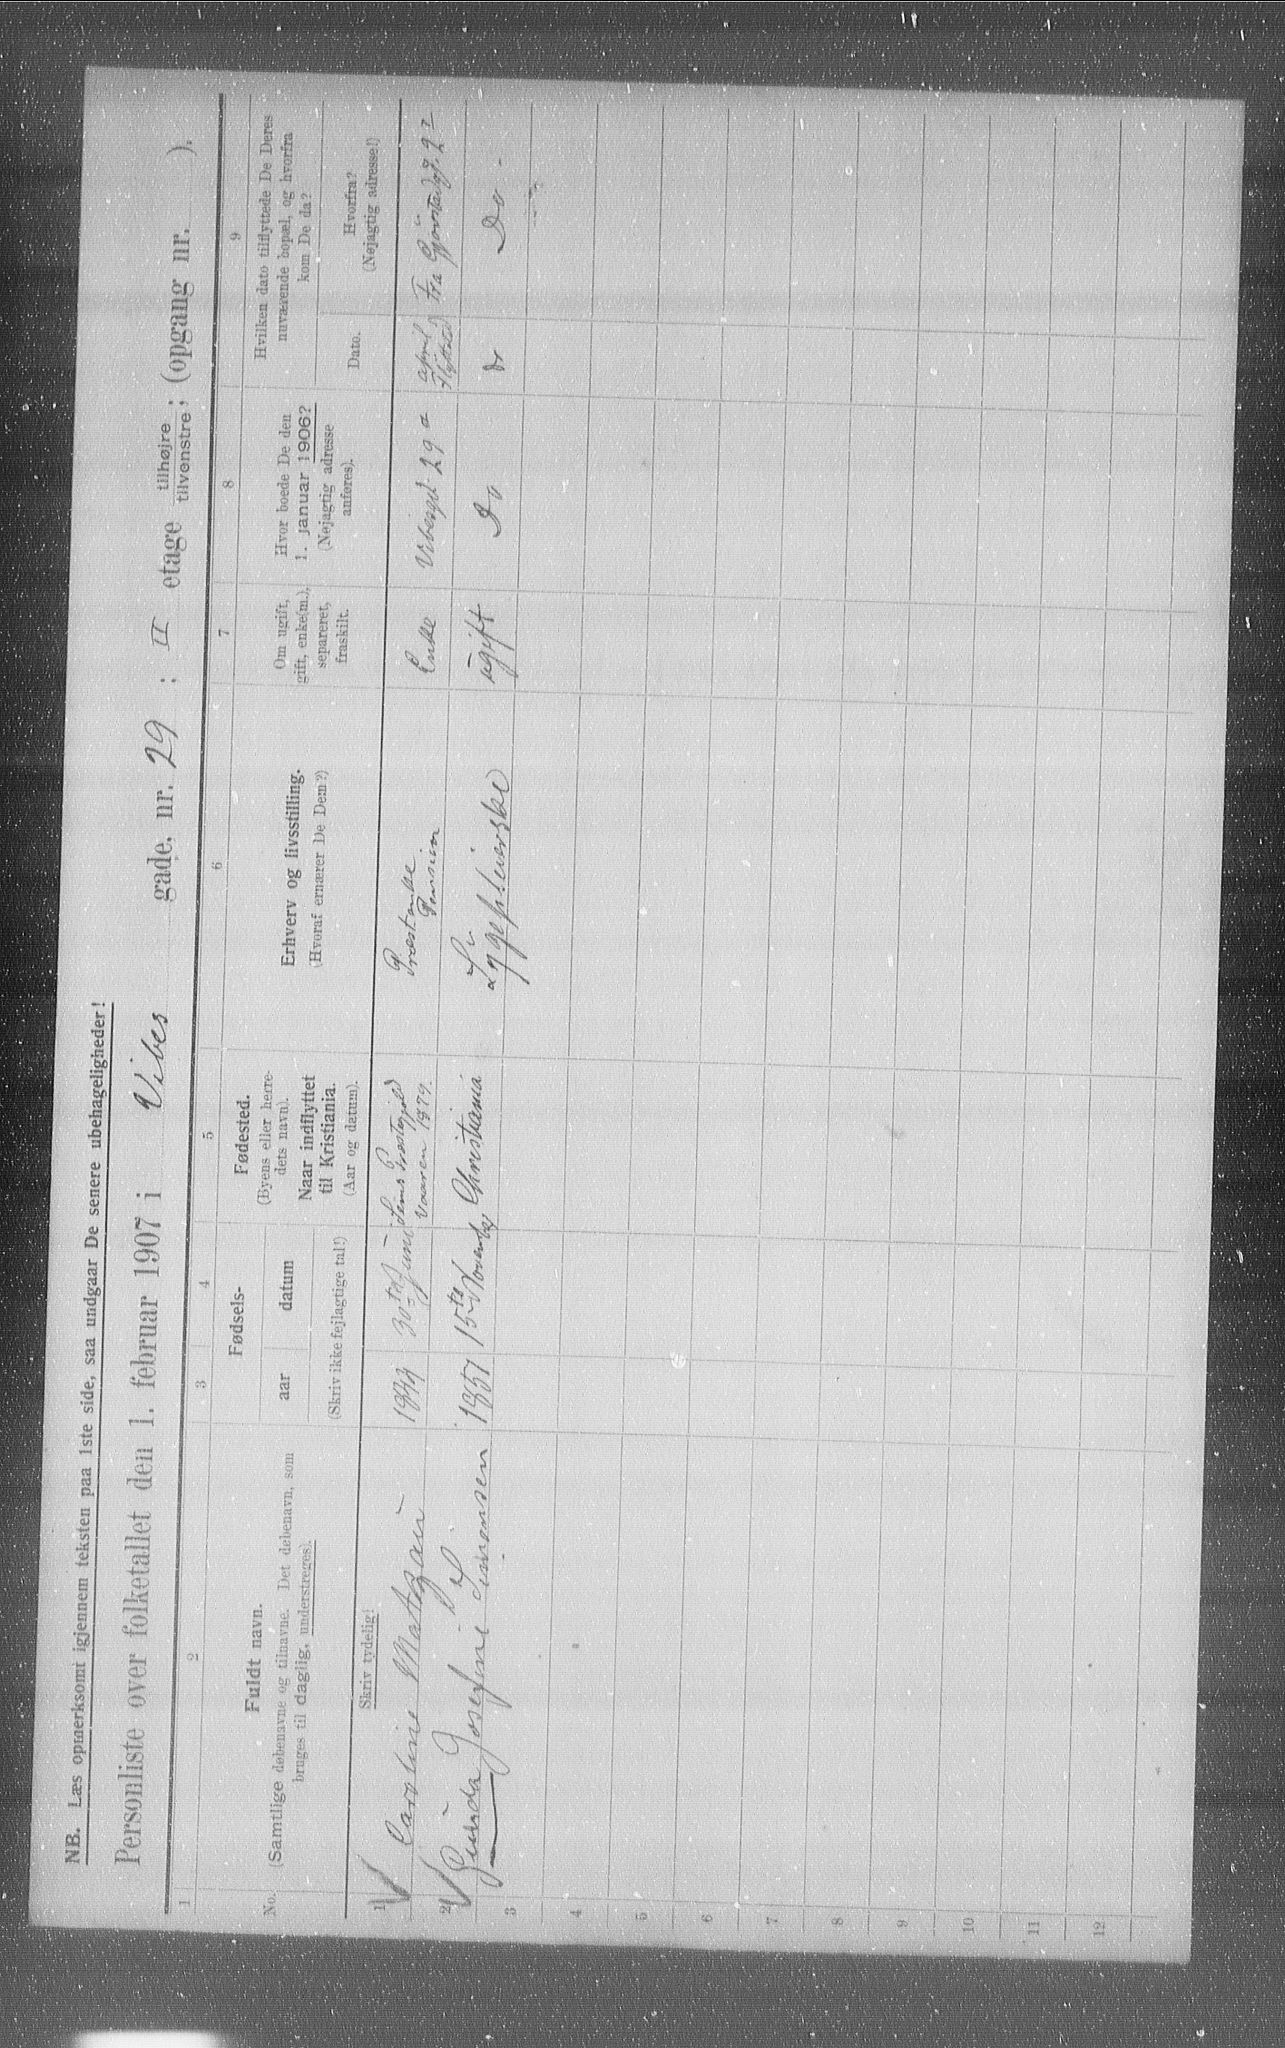 NB. Læs opmerksomt igjennem teksten paa 1ste side, saa undgaar De senere ubehageligheder!
Personliste over folketallet den 1. februar 1907 i Vibes gade, nr. 29 ; II etage tilhøjre tilvenstre ; (opgang nr. ).
1 2 3 4 5 6 7 8 9
No.
Fuldt navn.
(Samtlige døbenavne og tilnavne. Det døbenavn, som
bruges til daglig, understreges).
Skriv tydelig!
Fødsels-
aar datum
(Skriv ikke fejlagtige tal!)
Fødested.
(Byens eller herre-
dets navn).
Naar indflyttet
til Kristiania.
(Aar og datum).
Erhverv og livsstilling.
(Hvoraf ernærer De Dem?)
Om ugift,
gift, enke(m.),
separeret,
fraskilt.
Hvor boede De den
1. januar 1906?
(Nøjagtig adresse
anføres).
Hvilken dato tilflyttede De Deres
nuværende bopæl, og hvorfra
kom De da?
Dato.
Hvorfra?
(Nøjagtig adresse!)
1 Caroline 1844 30te Juni Præstegjeld Vaaren 1879. Præstenke Pension Enke Vibesgd 29 a april Fra
2 Gunda Josefine Simonsen 1851 15te November Christiania Sygepleierske ugift Do do Do -
3
4
5
6
7
8
9
10
11
12